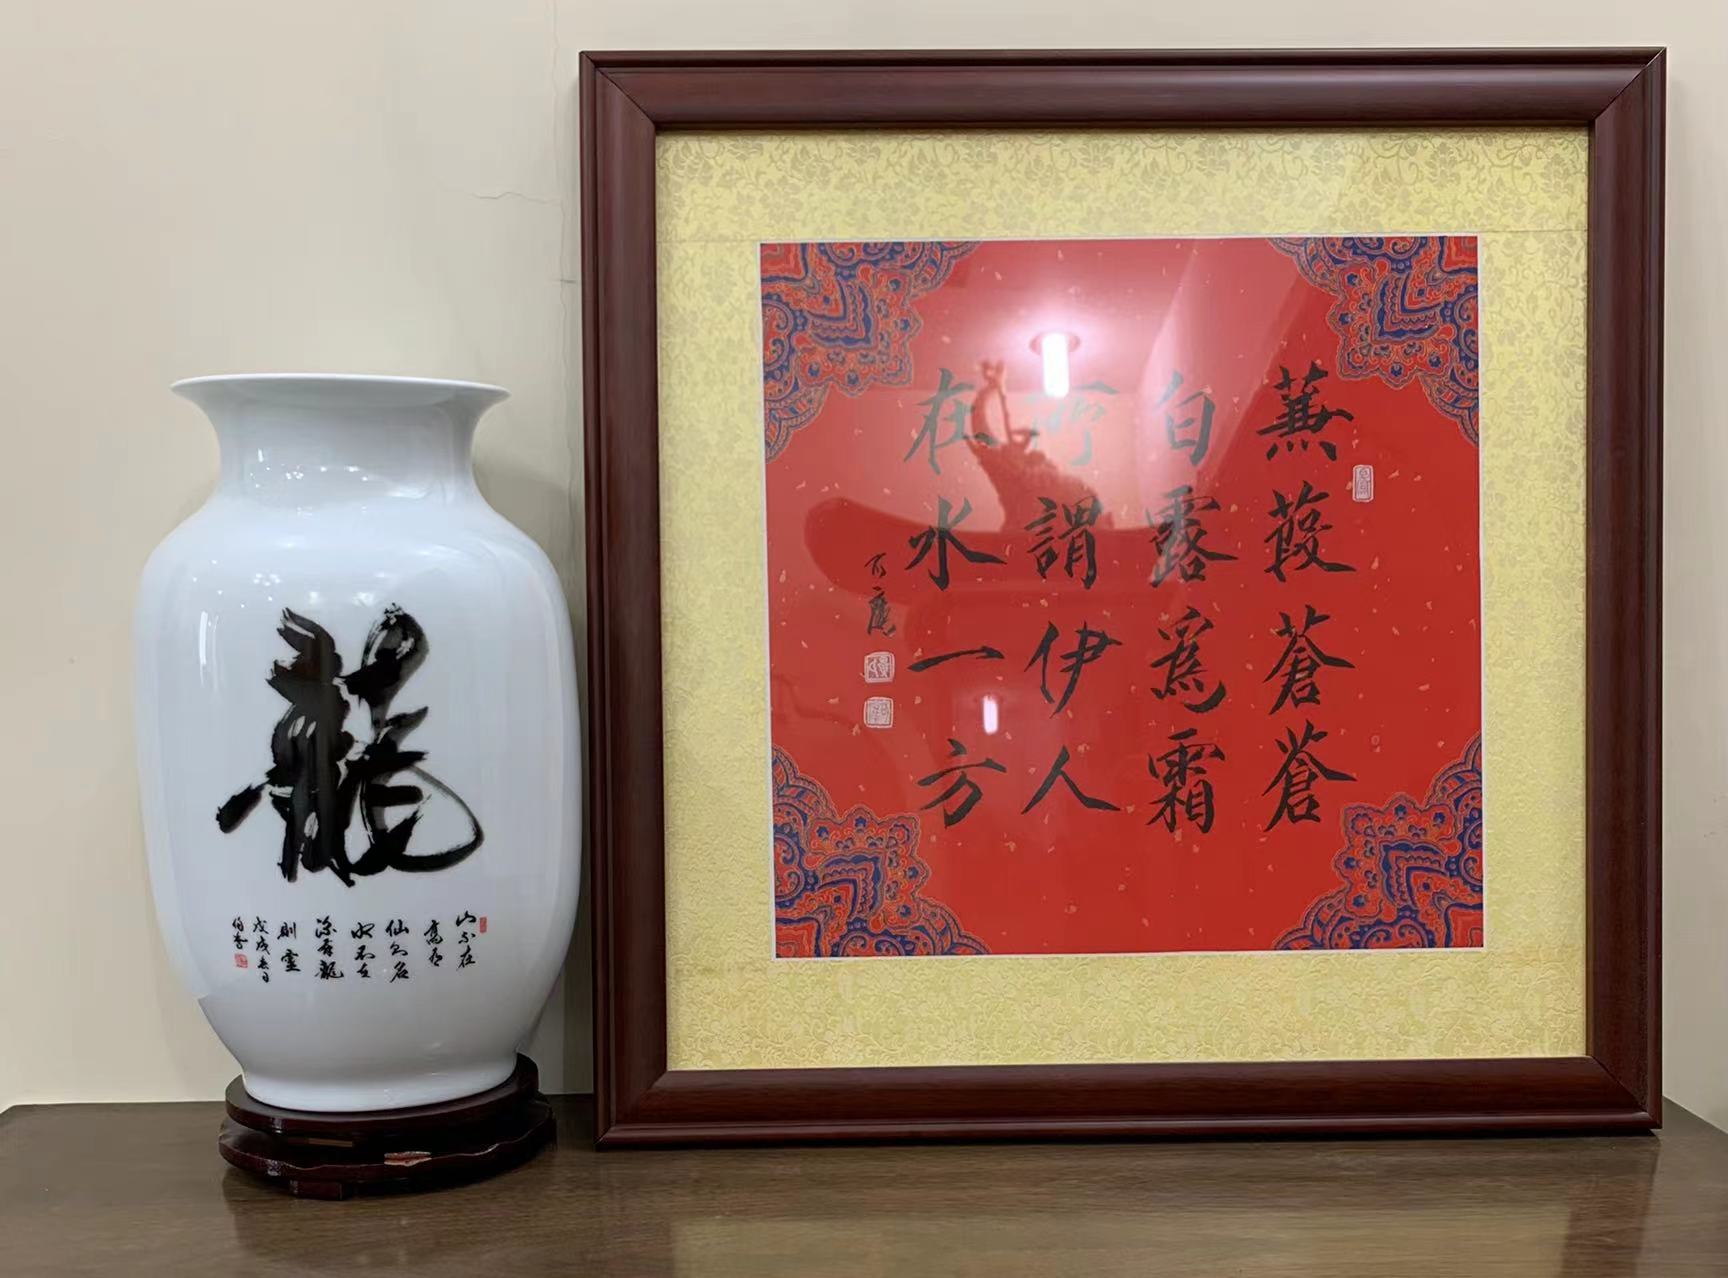 龍
山不在
高有
仙則名
水不在
深有龍
則靈
戊戌春月
蒹葭蒼蒼
白露為霜
所謂伊人
在水一方